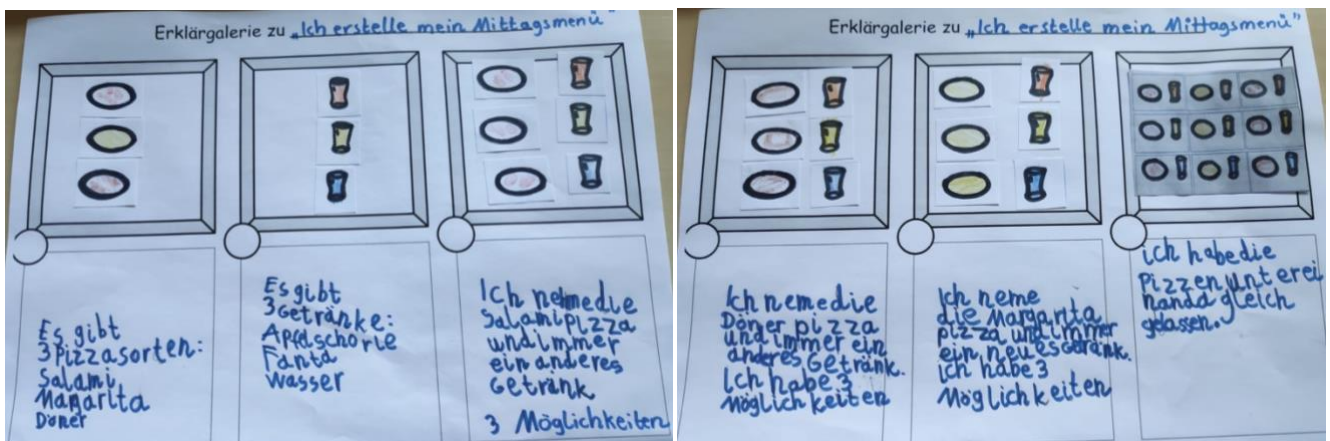 Erklärgalerie zu „Ich erstelle mein Mittagsmenü"
Es gibt
3 Pizzasorten:
Salami
Margarita
Döner
Es gibt
3 Getränke:
Apfelschorle
Fanta
Wasser
Ich nehme die
Salamipizza
und immer
ein anderes
Getränk
3 Möglichkeiten
Erklärgalerie zu „Ich erstelle mein Mittagsmenü"
Ich neme die
Döner pizza
und immer ein
anderes Getränk.
Ich habe 3
Möglichkeiten
Ich neme
die Margarita
pizza und immer
ein neues Getränk.
Ich habe 3
Möglichkeiten
ich habe die
Pizzen unterei
nanda gleich
gelassen.